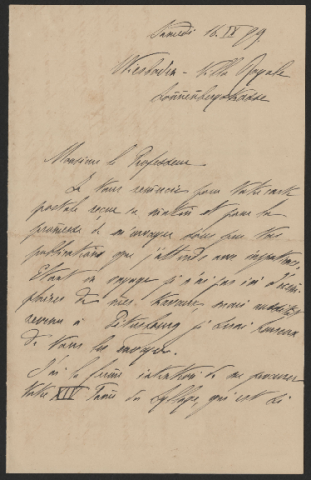 Samedi 16.IX 99.
Wiesbaden - Villa Royale
Sonnenbergerstrasse
Monsieur le Professeur
Je Vous remercie pour Votre carte
postale reçue ce matin et pour la
promesse de m'envoyer sous peu Vos
publications que j'attends avec impatience.
Etant en voyage je n'ai pas ici d'exem-
plaires de mes travaux, mais aussitôt
revenu à Pétersbourg je serai heureux
de Vous les envoyer.
J'ai la ferme intention de me procurer
Votre XII Tome du Sylloge, qui est si